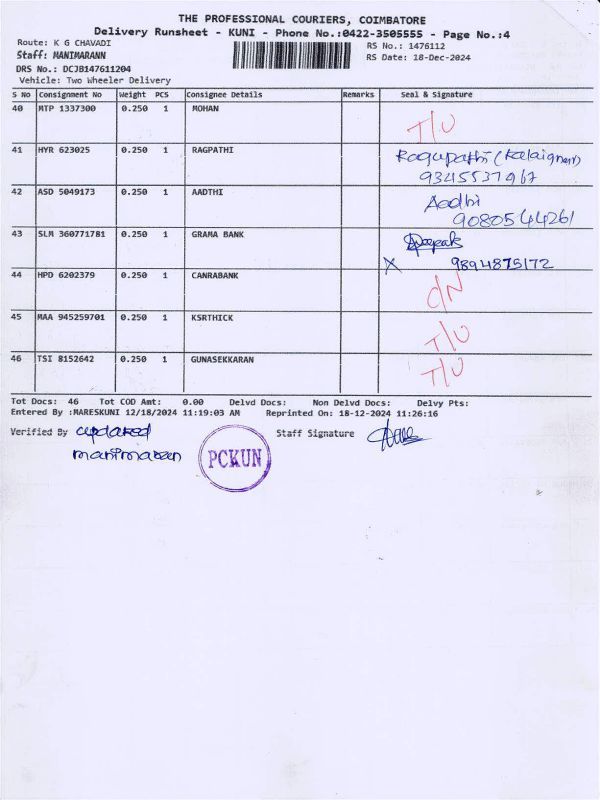 THE PROFESSIONAL COURIERS, COIMBATORE
Delivery Runsheet - KUNI - Phone No.:0422-3505555 - Page No.:4
Route: K G CHAVADI RS No.: 1476112
Staff: MANIMARANN RS Date: 18-Dec-2024
DRS No.: DCJB147611204
Vehicle: Two Wheeler Delivery
S No Consignment No Weight PCS Consignee Details Remarks Seal & Signature
40 MTP 1337300 0.250 1 MOHAN T/U
41 HYR 623025 0.250 1 RAGPATHI Ragupathi (Kalaignar)
9345537967
42 ASD 5049173 0.250 1 AADTHI Aadhi
9080544261
43 SLM 360771781 0.250 1 GRAMA BANK Deepak
X 9894875172
44 HPD 6202379 0.250 1 CANRABANK C/N
45 MAA 945259701 0.250 1 KSRTHICK T/U
46 TSI 8152642 0.250 1 GUNASEKKARAN T/U
Tot Docs: 46 Tot COD Amt: 0.00 Delvd Docs: Non Delvd Docs: Delvy Pts:
Entered By :MARESKUNI 12/18/2024 11:19:03 AM Reprinted On: 18-12-2024 11:26:16
Verified By updated Staff Signature
manimaran
PCKUN